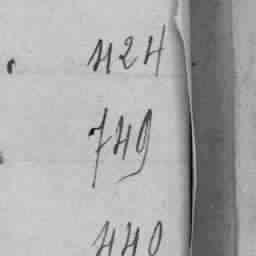 424
749
440